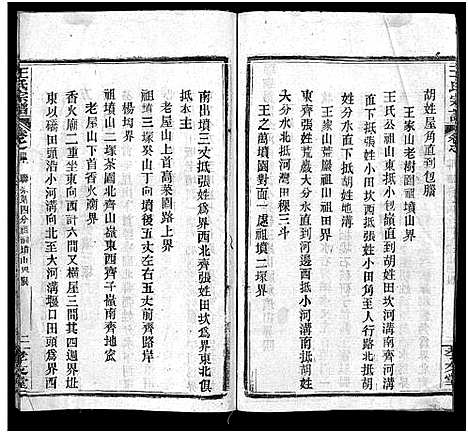 王氏宗譜
屋右墈角直到包腦
王家山老樹園祖墳山界
王氏公祖山東抵小包嶺直到胡姓田坎河溝南齊河
溝直下抵張姓小田坎西抵張姓小田角王人行路北抵胡
姓田坎直到胡姓地溝
王家山荒巖祖山界
東齊張姓荒巖大分水直到河邊西抵小河溝南抵胡姓
大分水北抵河灣田稞三斗
王之萬墳園對面一處祖墳二塚界
南出墳三丈抵張姓為界西北齊張姓田坎為界東北俱
抵本主
老屋山上首高萊園路上界
祖墳三塚癸山丁向墳後五丈左右五丈墳前齊路岸
楊㘭界
祖墳山二塚茶園北齊山嶺東西齊子嶺南齊地㘭
老屋山下首香火廟界
香火廟二重坐東向西計六間又橫屋三間其四週界址
東以磡田頭沿小河溝向北至大河溝堰口田頭為界西
王氏宗譜
二
孝友堂